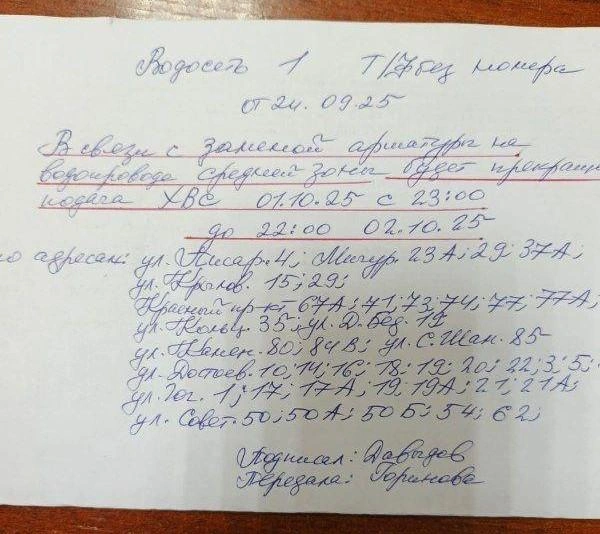 Водосеть 1 Т/ф без номера
от 24.09.25
В связи с заменой арматуры на
водопроводе средней зоны будет прекращ
подача ХВС 01.10.25 с 23:00
до 22:00 02.10.25
по адресам: ул. Писар. 4; Мичур. 23А; 29; 37А;
ул. Крылов. 15; 29;
Красный пр-кт 67А; 71; 73; 74; 77; 77А;
ул. Конц. 35; ул. Д. Бед. 19
ул. Камен. 80; 84В; ул. С. Шам. 85
ул. Достоев. 10; 14; 16; 18; 19; 20; 22; 3; 5;
ул. Гог. 1; 17; 17А; 19; 19А; 21; 21А;
ул. Совет. 50; 50А; 50Б; 54; 62;
Подписал: Давыдов
Передала: Горинова